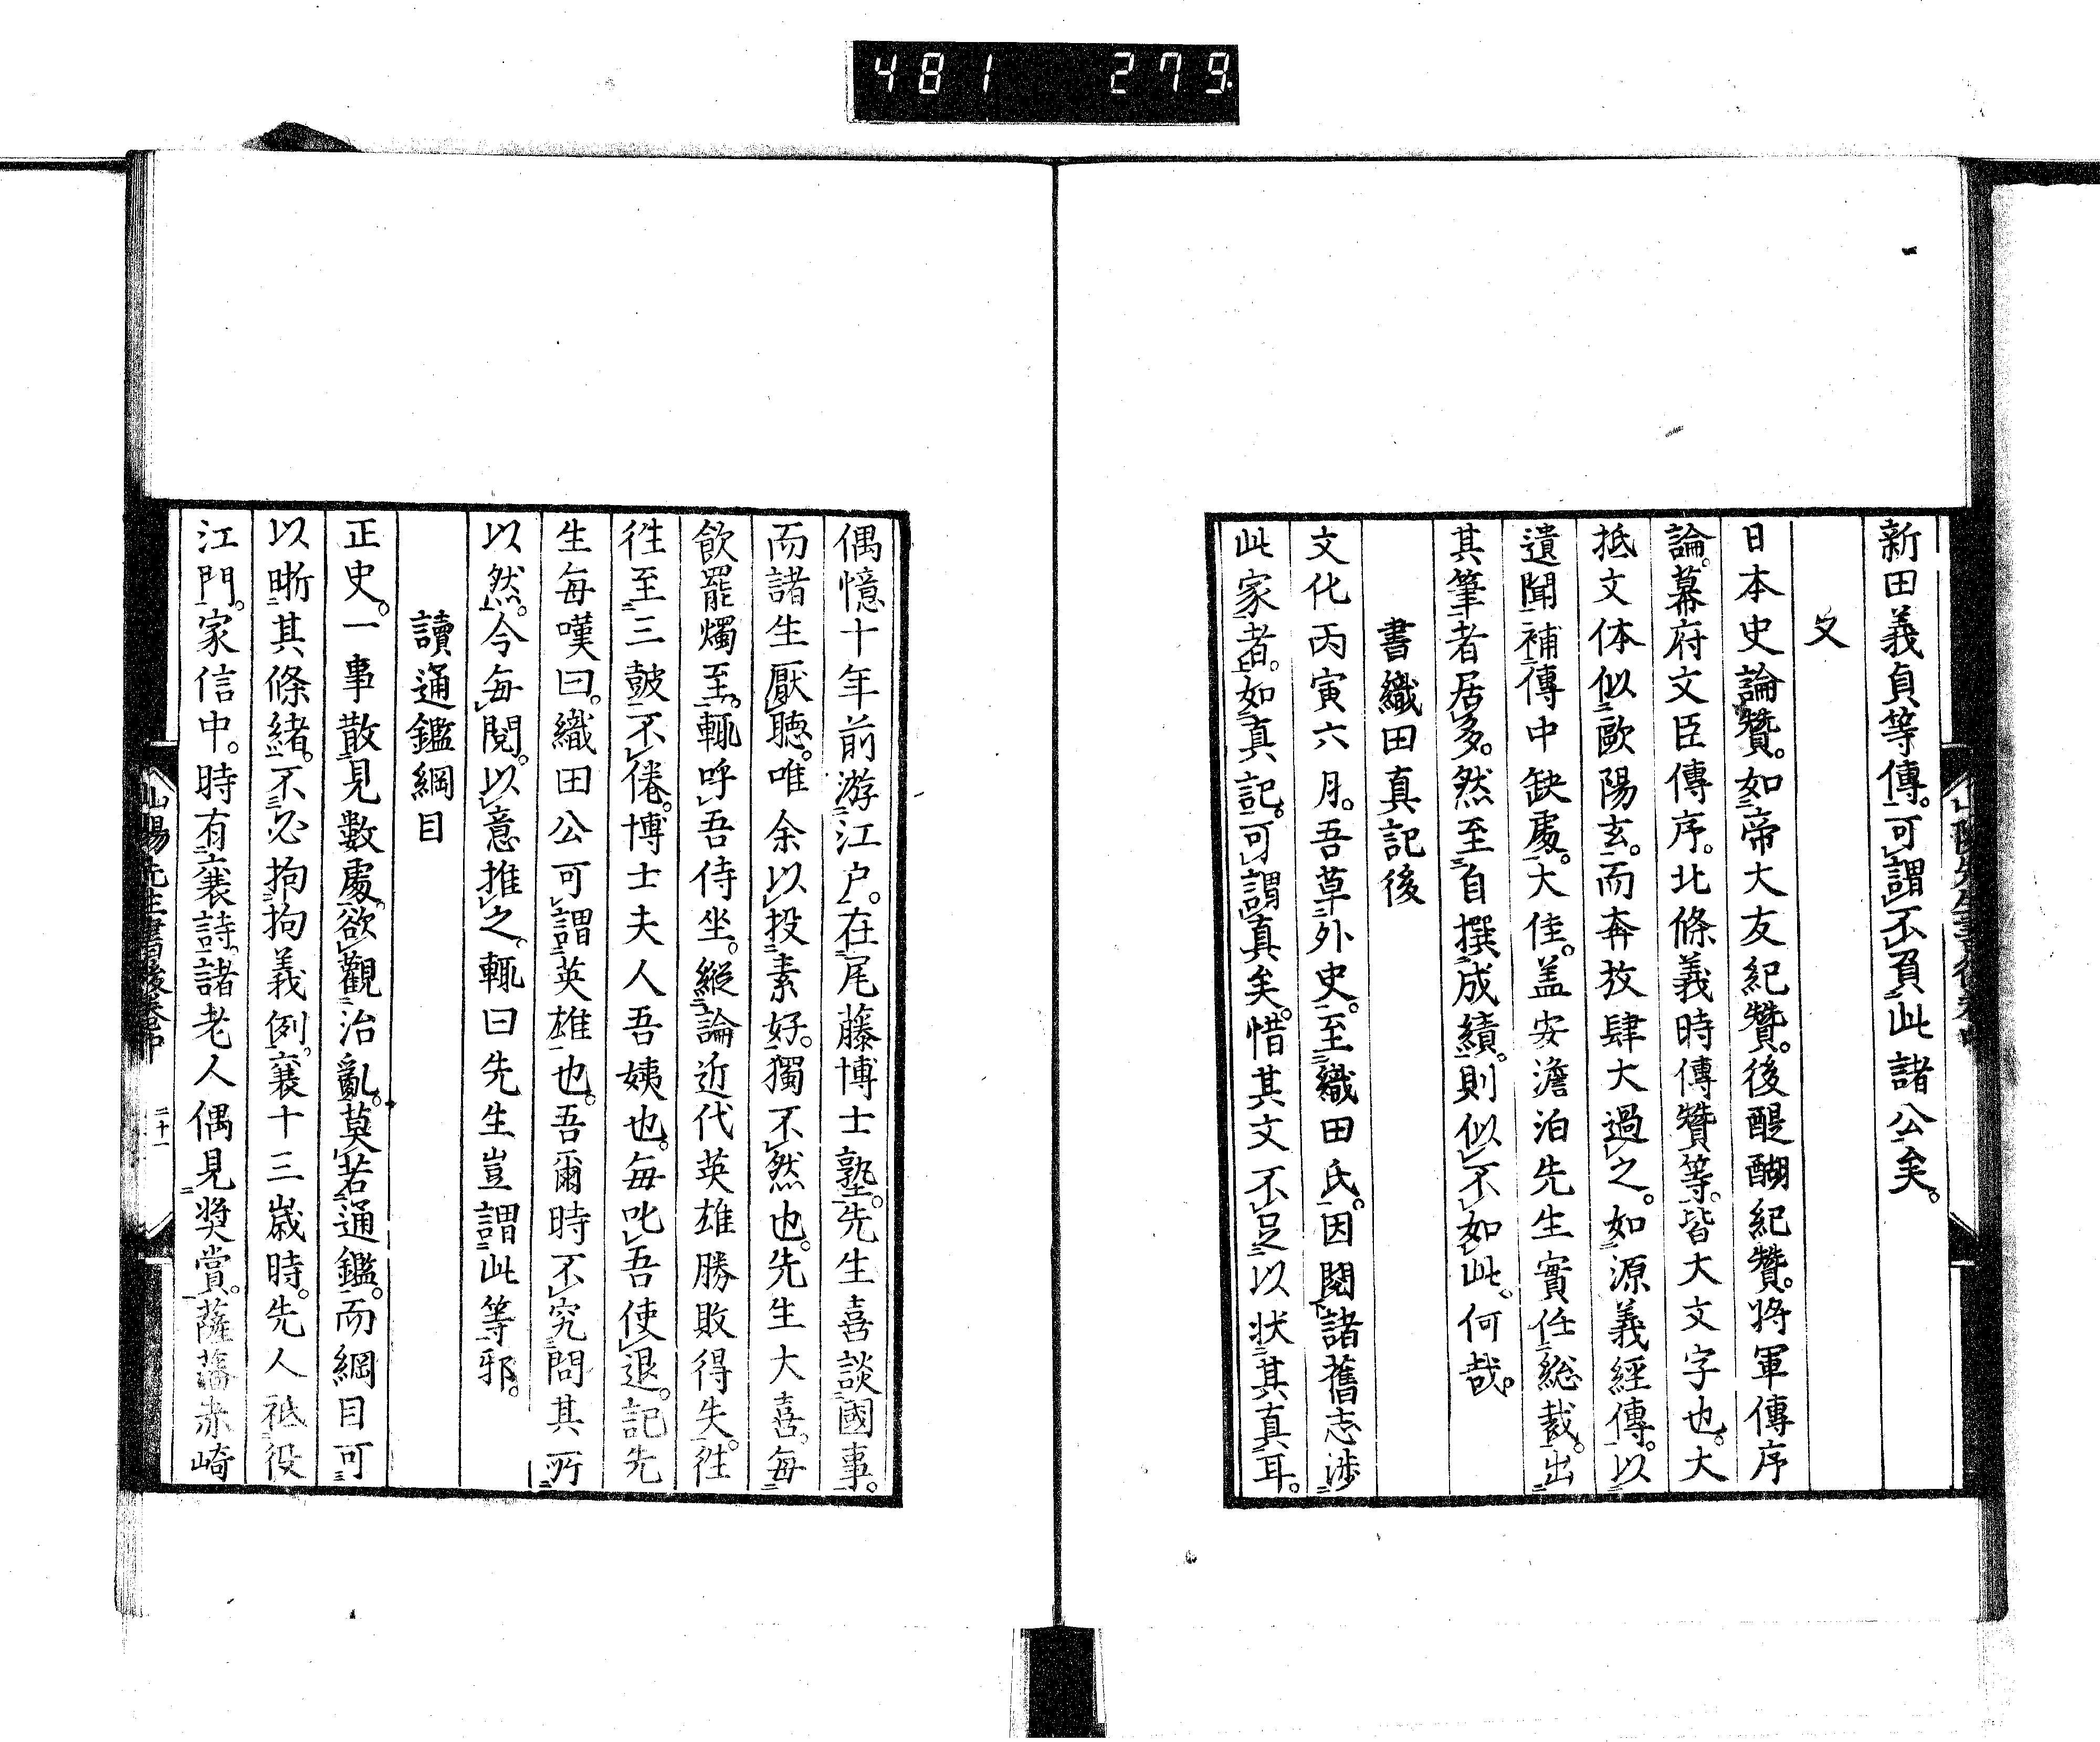 481 279
新田義貞等傳。可謂不負此諸公矣。
又
日本史論贊。如帝大友紀贊。後醍醐紀贊。将軍傳序
論。幕府文臣傳序。北條義時傳贊等。皆大文字也。大
抵文体似歐陽玄。而奔放肆大過之。如源義經傳。以
遺聞補傳中缺處。大佳。盖安澹泊先生實任総裁。出
其筆者居多。然至自撰成績。則似不如此。何哉。
書織田真記後
文化丙寅六月。吾草外史。至織田氏。因閲諸舊志渉
此家者。如真記。可謂真矣。惜其文不足以状其真耳。
偶憶十年前游江户。在尾藤博士塾。先生喜談國事。
而諸生厭聽。唯余以投素好。獨不然也。先生大喜。每
飲罷燭至。輙呼吾侍坐。縱論近代英雄勝敗得失。徃
徃至三鼓不倦。博士夫人吾姨也。每叱吾使退。記先
生每嘆曰。織田公可謂英雄也。吾爾時不究問其所
以然。今每閲。以意推之。輙曰先生豈謂此等邪。
讀通鑑綱目
正史。一事散見數處。欲觀治亂。莫若通鑑。而綱目可
以晰其條緒。不必拘拘義例。襄十三歳時。先人祗役
江門。家信中。時有襄詩。諸老人偶見奬賞。薩藩赤崎
山陽先生書後卷中 二十一